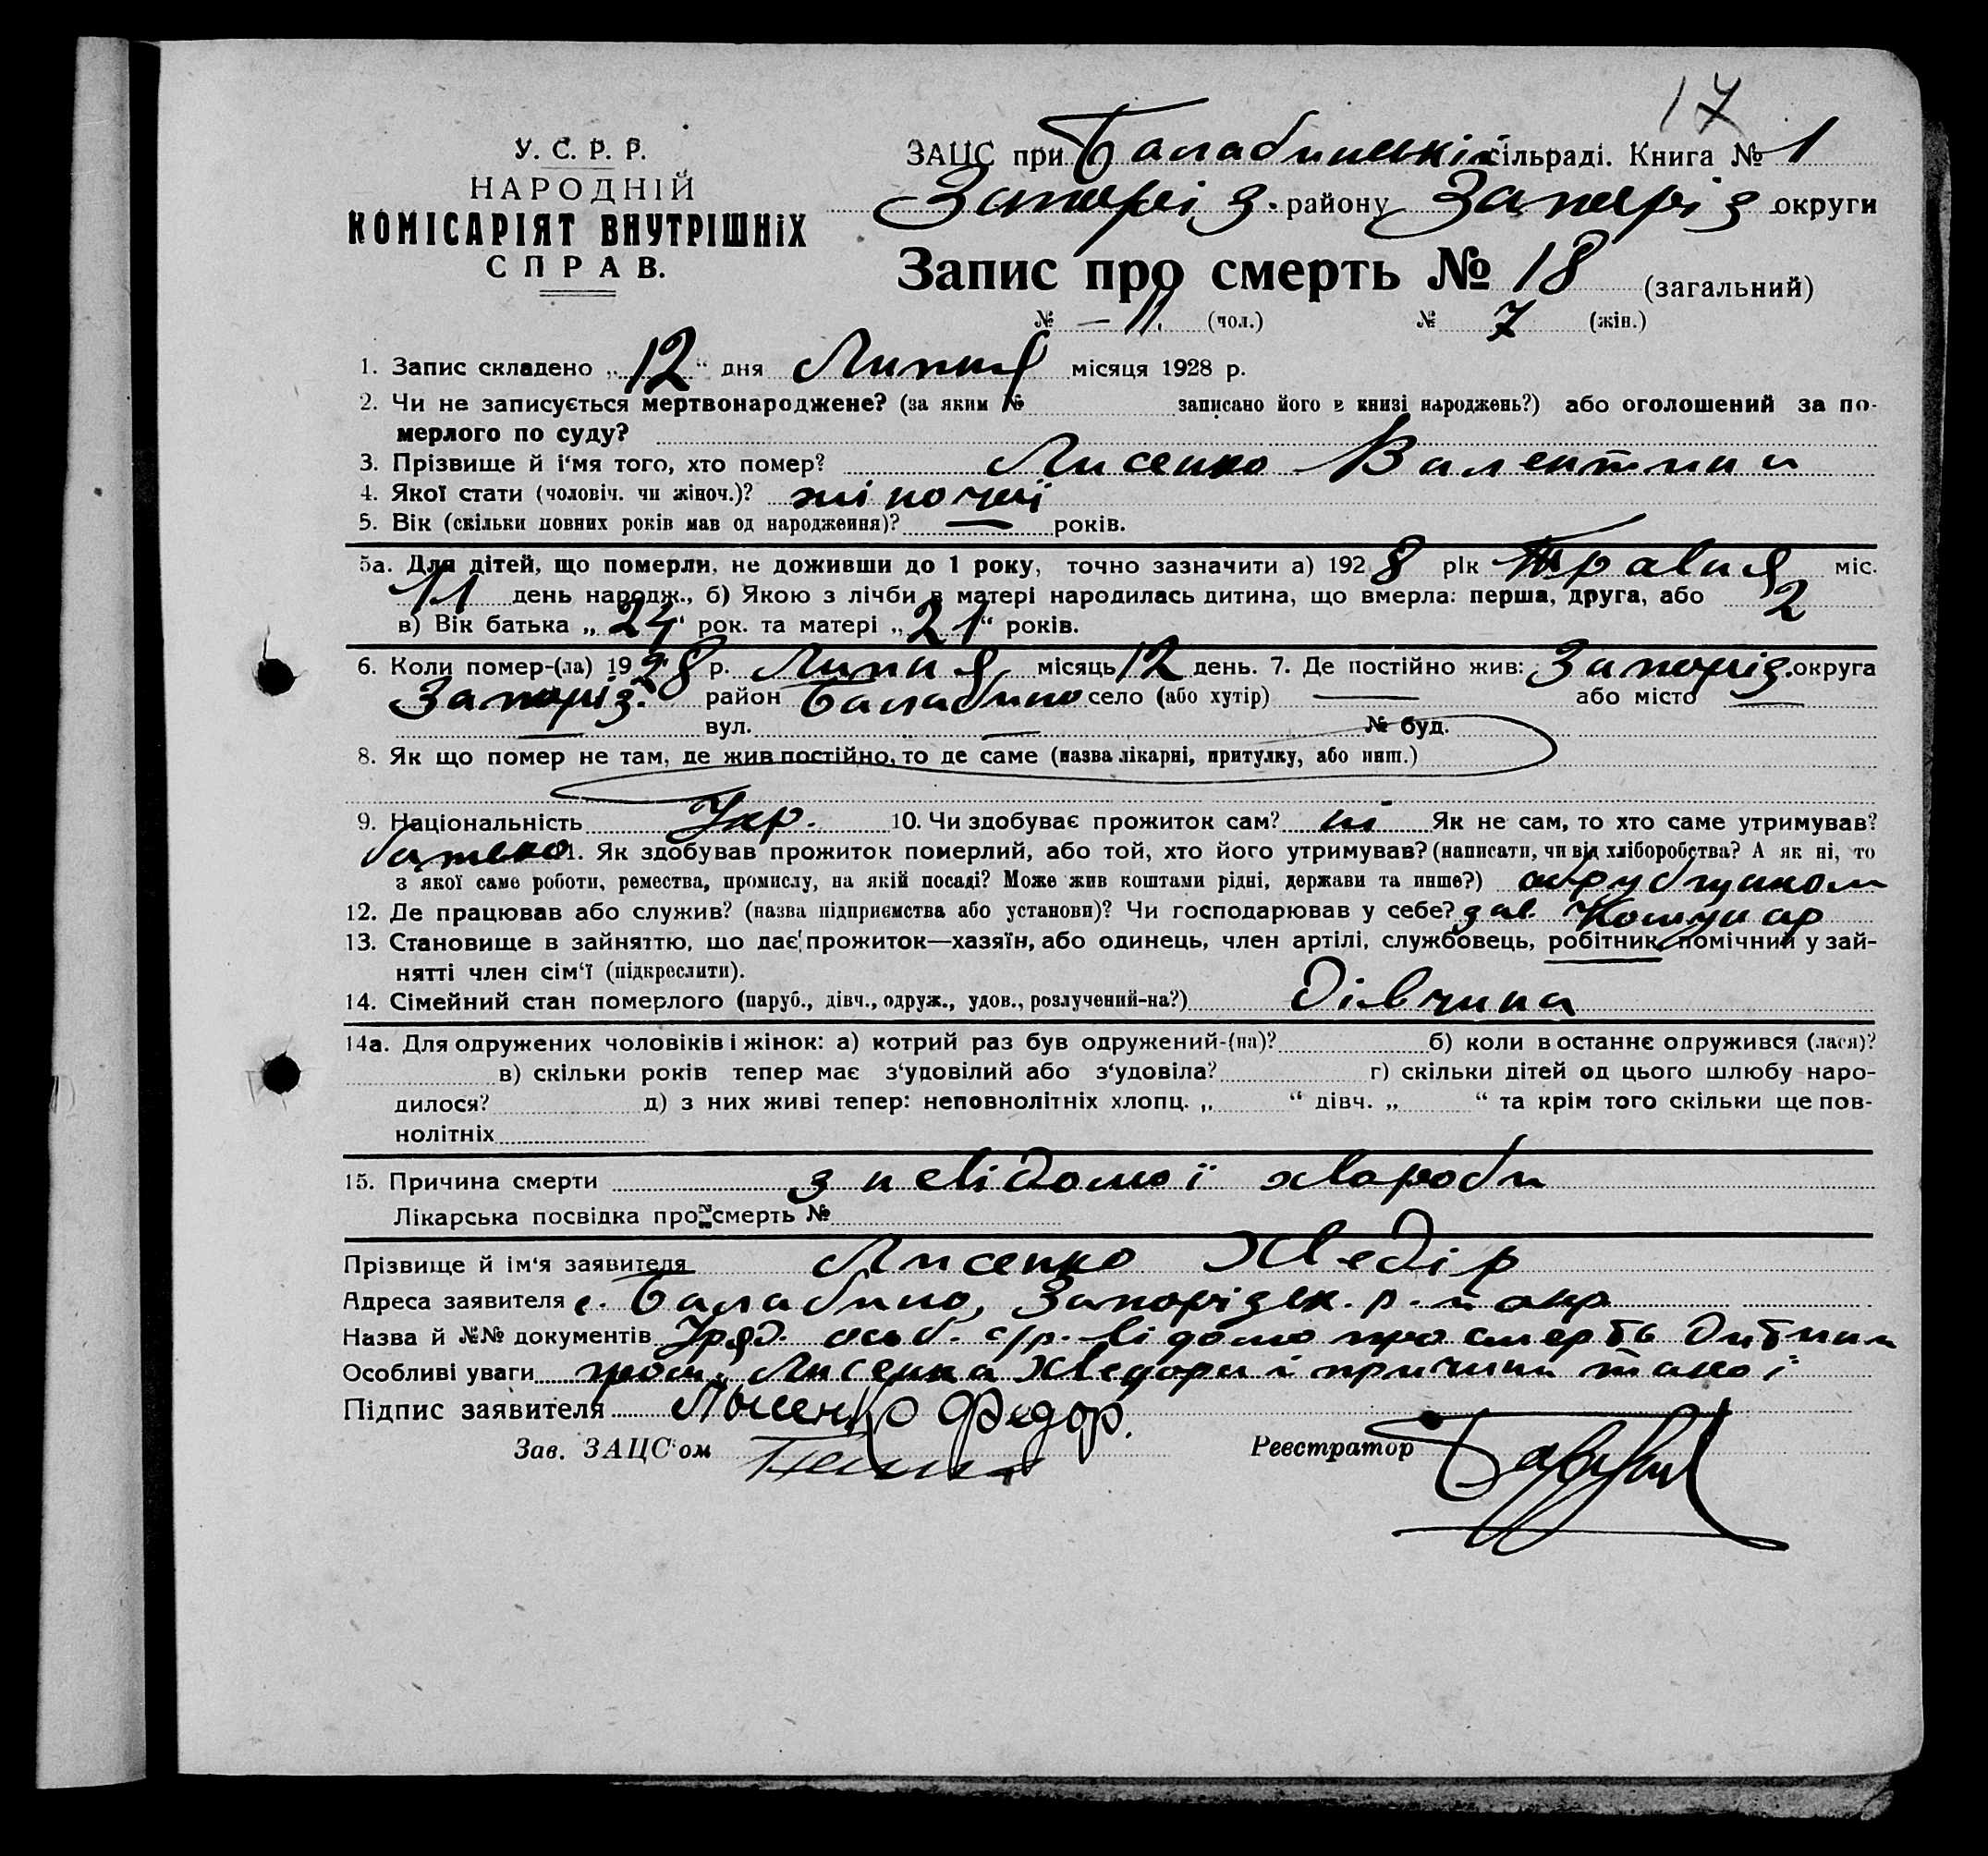 17
У. С. Р. Р.
НАРОДНІЙ
КОМІСАРІЯТ ВНУТРІШНІХ
СПРАВ.
ЗАЦС при Балабинській сільраді. Книга № 1
Запоріз. району Запоріз округи
Запис про смерть № 18 (загальний)
№ — 11. (чол.) № 7 (жін.)
1. Запис складено „12“ дня Липня місяця 1928 р.
2. Чи не записується мертвонароджене? (за яким № записано його в книзі народжень?) або оголошений за по-
мерлого по суду?
3. Прізвище й і'мя того, хто помер? Лисенко Валентина
4. Якої стати (чоловіч. чи жіноч.)? жіночої
5. Вік (скільки повних років мав од народження)? — років.
5а. Для дітей, що померли, не доживши до 1 року, точно зазначити а) 1928 рік Травня міс.
11 день народж., б) Якою з лічби в матері народилась дитина, що вмерла: перша, друга, або 2
в) Вік батька „24“ рок. та матері „21“ років.
6. Коли помер-(ла) 1928 р. Липня місяць 12 день. 7. Де постійно жив: Запоріз. округа
Запоріз. район Балабино село (або хутір) — або місто —
— вул. — № буд.
8. Як що помер не там, де жив постійно, то де саме (назва лікарні, притулку, або инш.)
9. Національність Укр. 10. Чи здобуває прожиток сам? ні Як не сам, то хто саме утримував?
батько 11. Як здобував прожиток померлий, або той, хто його утримував? (написати, чи від хліборобства? А як ні, то
з якої саме роботи, ремества, промислу, на якій посаді? Може жив коштами рідні, держави та инше?)
12. Де працював або служив? (назва підприємства або установи)? Чи господарював у себе? зав. Комунар
13. Становище в зайняттю, що дає прожиток—хазяїн, або одинець, член артілі, службовець, робітник, помічний у зай-
нятті член сім'ї (підкреслити).
14. Сімейний стан померлого (паруб., дівч., одруж., удов., розлучений-на?) дівчина
14а. Для одружених чоловіків і жінок: а) котрий раз був одружений-(на)? б) коли востаннє одружився (лася)?
в) скільки років тепер має з'удовілий або з'удовіла? г) скільки дітей од цього шлюбу наро-
дилося? д) з них живі тепер: неповнолітніх хлопц. „ “ дівч. „ “ та крім того скільки ще пов-
нолітніх
15. Причина смерти з невідомої хвароби
Лікарська посвідка про смерть №
Прізвище й ім'я заявителя Лисенко Хведір
Адреса заявителя с. Балабино, Запорізьк. р. й окр
Назва й №№ документів Уряд. особ. с/р. відомо про смерть дитини
Особливі уваги гром. Лисенка Хведора й причини такої
Підпис заявителя Лысенко Федор.
Зав. ЗАЦС'ом Реєстратор